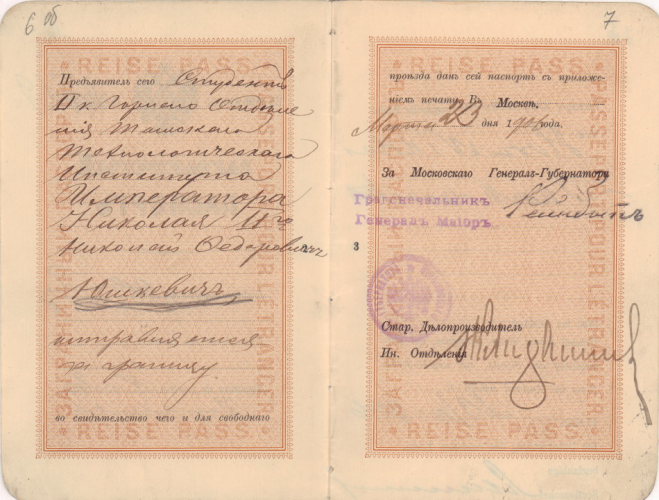 6 об
REISE PASS
ЗАГРАНИЧНЫЙ ПАСПОРТЪ
PASSEPORT POUR L'ÉTRANGER
Предъявитель сего Студентъ
II к. Горнаго Отдѣле
нія Томскаго
Технологическаго
Института
Императора
Николая II го
Николай Ѳедоровичъ
Юшкевичъ
отправляется
за границу
во свидѣтельство чего и для свободнаго
REISE PASS
7
REISE PASS
ЗАГРАНИЧНЫЙ ПАСПОРТЪ
PASSEPORT POUR L'ÉTRANGER
проѣзда данъ сей паспортъ съ приложе-
ніемъ печати. Въ Москвѣ.
Марта 23 дня 190 года.
За Московскаго Генералъ-Губернатора
Градоначальникъ
Генералъ Маіоръ
3
Стар. Дѣлопроизводитель
Ин. Отдѣленія
REISE PASS